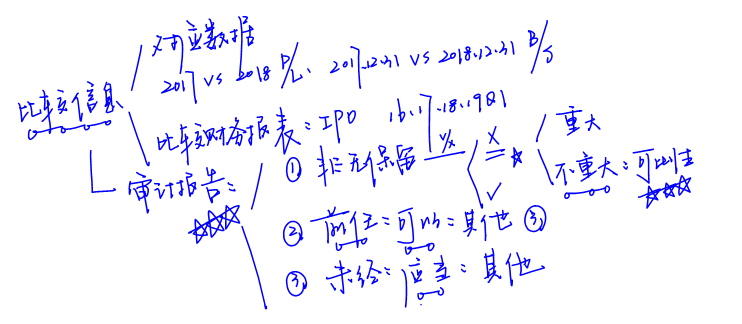 对应数据
2017 vs 2018 P/L、 2017.12.31 vs 2018.12.31 B/S
比较信息
比较财务报表：IPO 16.17.18.19Q1
审计报告：
① 非无保留 √/× × 重大
√ 不重大：可比性
② 前任：可以：其他 ③
③ 未经：应当：其他